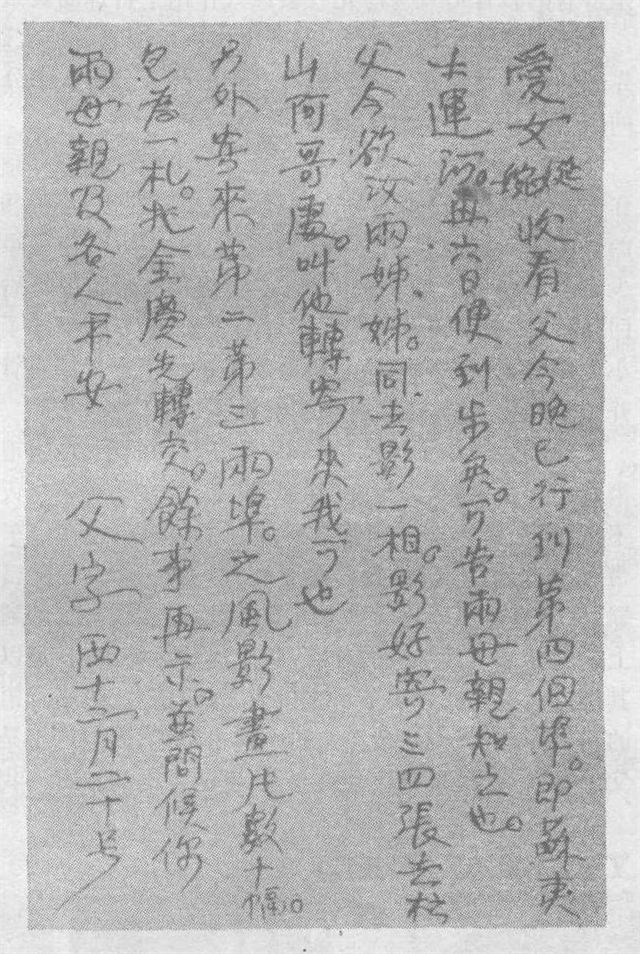 愛女娫婉收看父今晚已行到第四個埠。即蘇夷
士運河。再六日便到步矣。可告兩母親知之也。
父今欲汝兩姊妹。同去影一相。影好寄三四張去松
山阿哥處。叫他轉寄來我可也
另外寄來第二第三兩埠。之風影畫片數十幅。
包為一札。托金慶先轉交。餘事再示。並問候你
兩母親及各人平安 父字 西十二月二十号